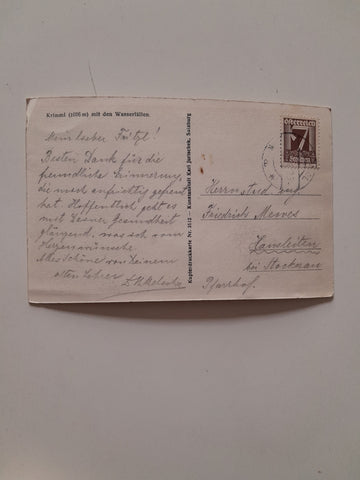 Krimml (1076 m) mit den Wasserfällen
Mein lieber Fritzl!
Besten Dank für die
freundliche Erinnerung,
die mich aufrichtig gefreut
hat. Hoffentlich geht es
mit Deiner Gesundheit
glänzend, was ich vom
Herzen wünsche.
Alles Schöne von Deinem
alten Lehrer
Kupferdruckkarte Nr. 2512 — Kunstanstalt Karl Jurischek, Salzburg
Österreich
7
Groschen
Herrn stud.
Friedrich Mewes
Hansleiten
bei Stocknau
Pfarrhof.